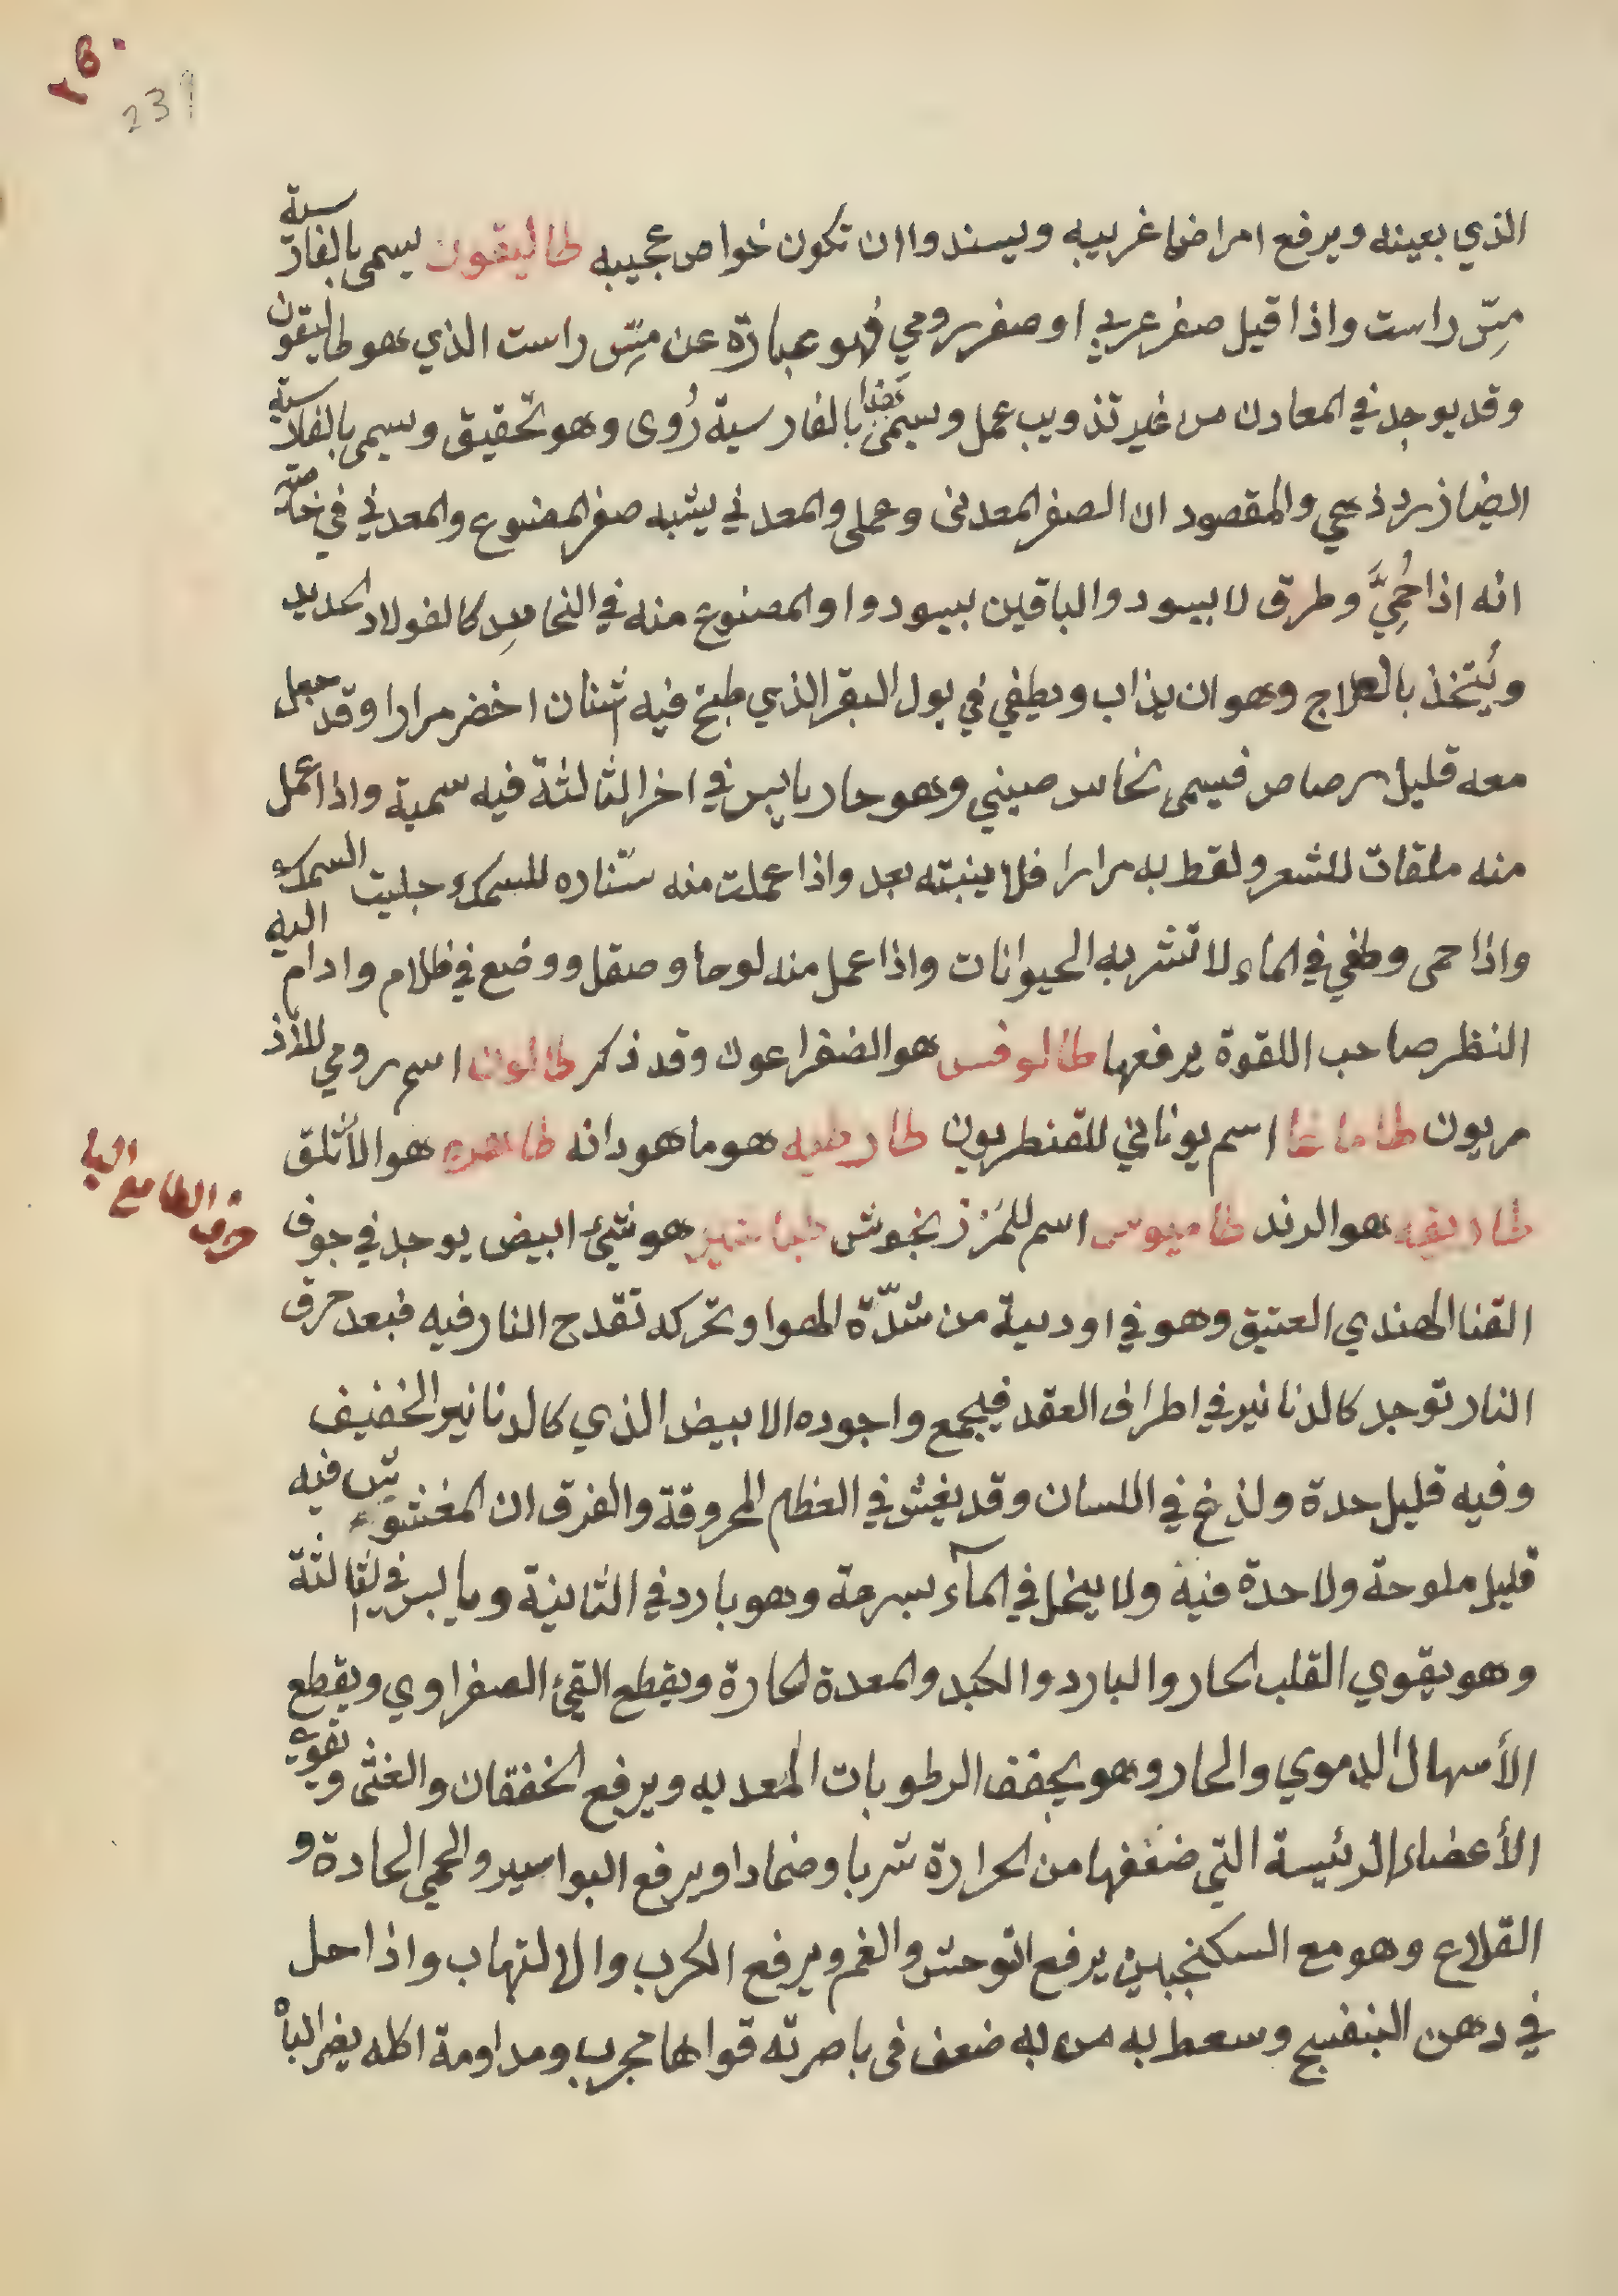 ٢٥٠
231
الذي بعينه ويرفع امراضا غريبه ويسندوا ان تكون خواص عجيبه طاليقون يسمى بالفارسية
مِسّ راست واذا قيل صفر عربي او صفر رومي فهو عبارة عن مِسّ راست الذي هو طاليقون
وقد يوجد في المعادن من غير تذويب عمل ويسمى بالفارسية رُوى وهو تحقيق ويسمى بالفارسية
ايضا ذهبي والمقصود ان الصفر المعدنى وعملى والمعدني يشبه صفر المصنوع والمعدني في خاصته
انه اذا حُمِيَّ وطرق لا يسود والباقين يسودوا والمصنوع منه في النحاسِ كالفولاد الحديد
ويُتخذ بالعلاج وهو ان يذاب ويطفي في بول البقر الذي طبخ فيه اشنان اخضر مرارا وقد جعل
معه قليل رصاص فيسمى نحاس صيني وهو حار يابس في اخر الثالثة فيه سمية واذا عمل
منه ملقات للشعر ولقط به مرارا فلا ينبته بعد واذا عملت منه ستّناره للسمك جلبت السمك اليه
واذا حمى وطفي في الماء لا تشربه الحيوانات واذا عمل منه لوحا وصقل ووضع في ظلام وادام
النظر صاحب اللقوة يرفعها طالوفس هو الضفراعون وقد ذكر طالون اسم رومي للماذر
مريون طاماغا اسم يوناني للقنطريون طارطيه هو ماهودانه طاهره هو الأثلق
طاريقه هو الرند طاميوس اسم للمَرزنجوش طباشير هو شئ ابيض يوجد في جوف
حرف الطا مع البا
القنا الهندي العتيق وهو في اودية من شدّة الهوا وتحركه تقدح النار فيه فبعد حرق
النار توجد كالدنانير في اطراف العقد فيجمع واجوده الابيض الذي كالدنانير الخفيف
وفيه قليل حدة ولذع في اللسان وقد يغش في العظام المحروقة والفرق ان المغشوش فيه
قليل ملوحة ولا حدة فيه ولا ينحل في المآء بسرعة وهو بارد في الثانية ويابس في الثالثة
وهو يقوي القلب الحار والبارد والكبد والمعدة الحارة ويقطع القئ الصفراوي ويقطع
الأسهال الدموي والحار وهو يجفف الرطوبات المعديه ويرفع الخفقان والغثى وتقوية
الأعضاء الرئيسة التي ضعفها من الحرارة شربا وضمادا ويرفع البواسير والحمي الحادة و
القلاع وهو مع السكنجبين يرفع التوحش والغم ويرفع الكرب والالتهاب واذا حل
في دهن البنفسج وسعط به من به ضعف فى باصرته قواها مجرب ومداومة اكله يضر البأ